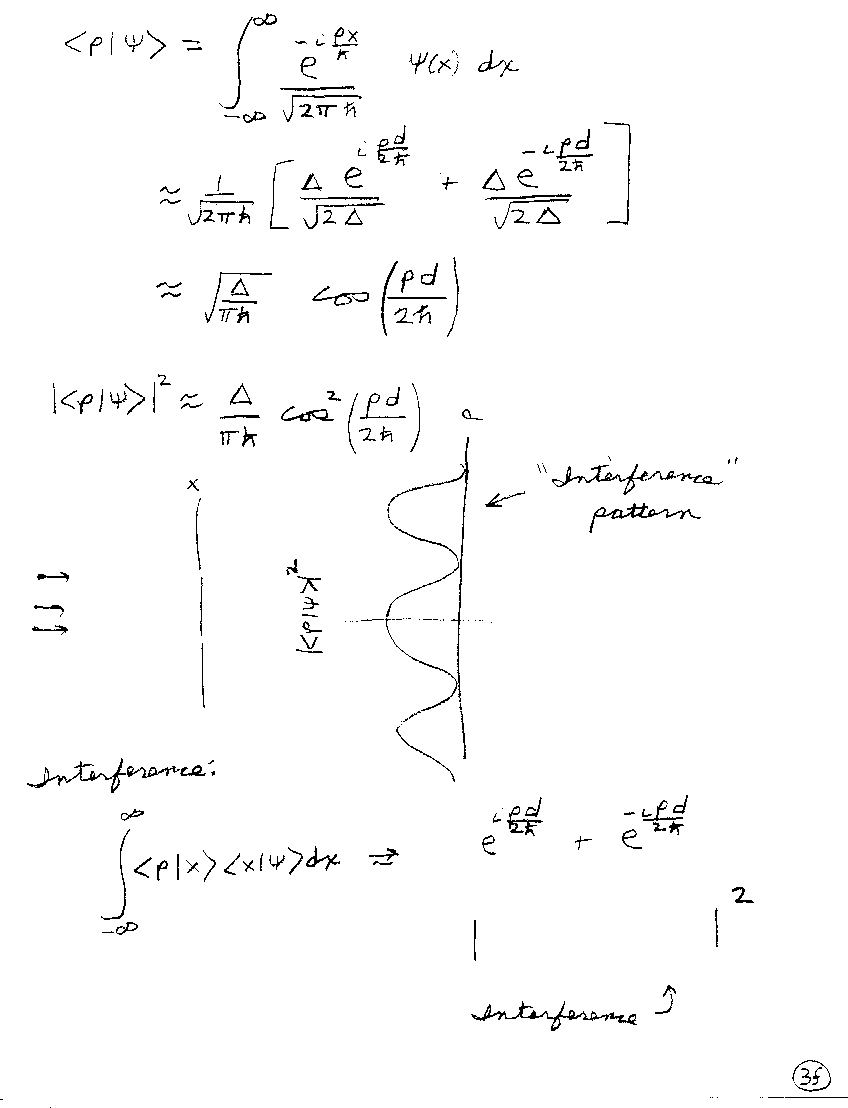 <p|ψ> = ∫_{-∞}^{∞} e^{-i px/ħ} / √(2πħ) ψ(x) dx
≈ 1/√(2πħ) [ Δ e^{i pd/2ħ} / √(2Δ) + Δ e^{-i pd/2ħ} / √(2Δ) ]
≈ √(Δ/πħ) cos (pd/2ħ)
|<p|ψ>|² ≈ Δ/πħ cos² (pd/2ħ)
x
|<p|ψ>|²
"Interference"
pattern
Interference:
∫_{-∞}^{∞} <p|x><x|ψ>dx ⇒ e^{i pd/2ħ} + e^{-i pd/2ħ}
| |²
Interference
3f